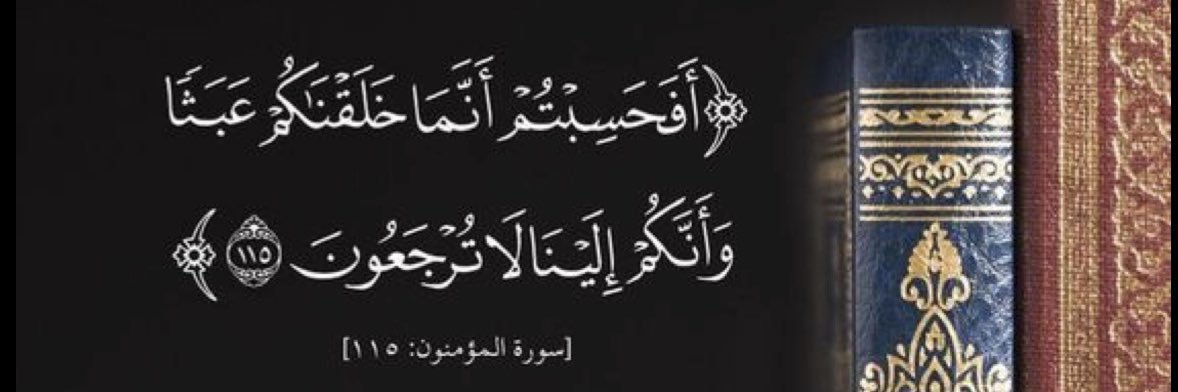 ﴿أَفَحَسِبْتُمْ أَنَّمَا خَلَقْنَاكُمْ عَبَثًا
وَأَنَّكُمْ إِلَيْنَا لَا تُرْجَعُونَ ١١٥﴾
[سورة المؤمنون: ١١٥]